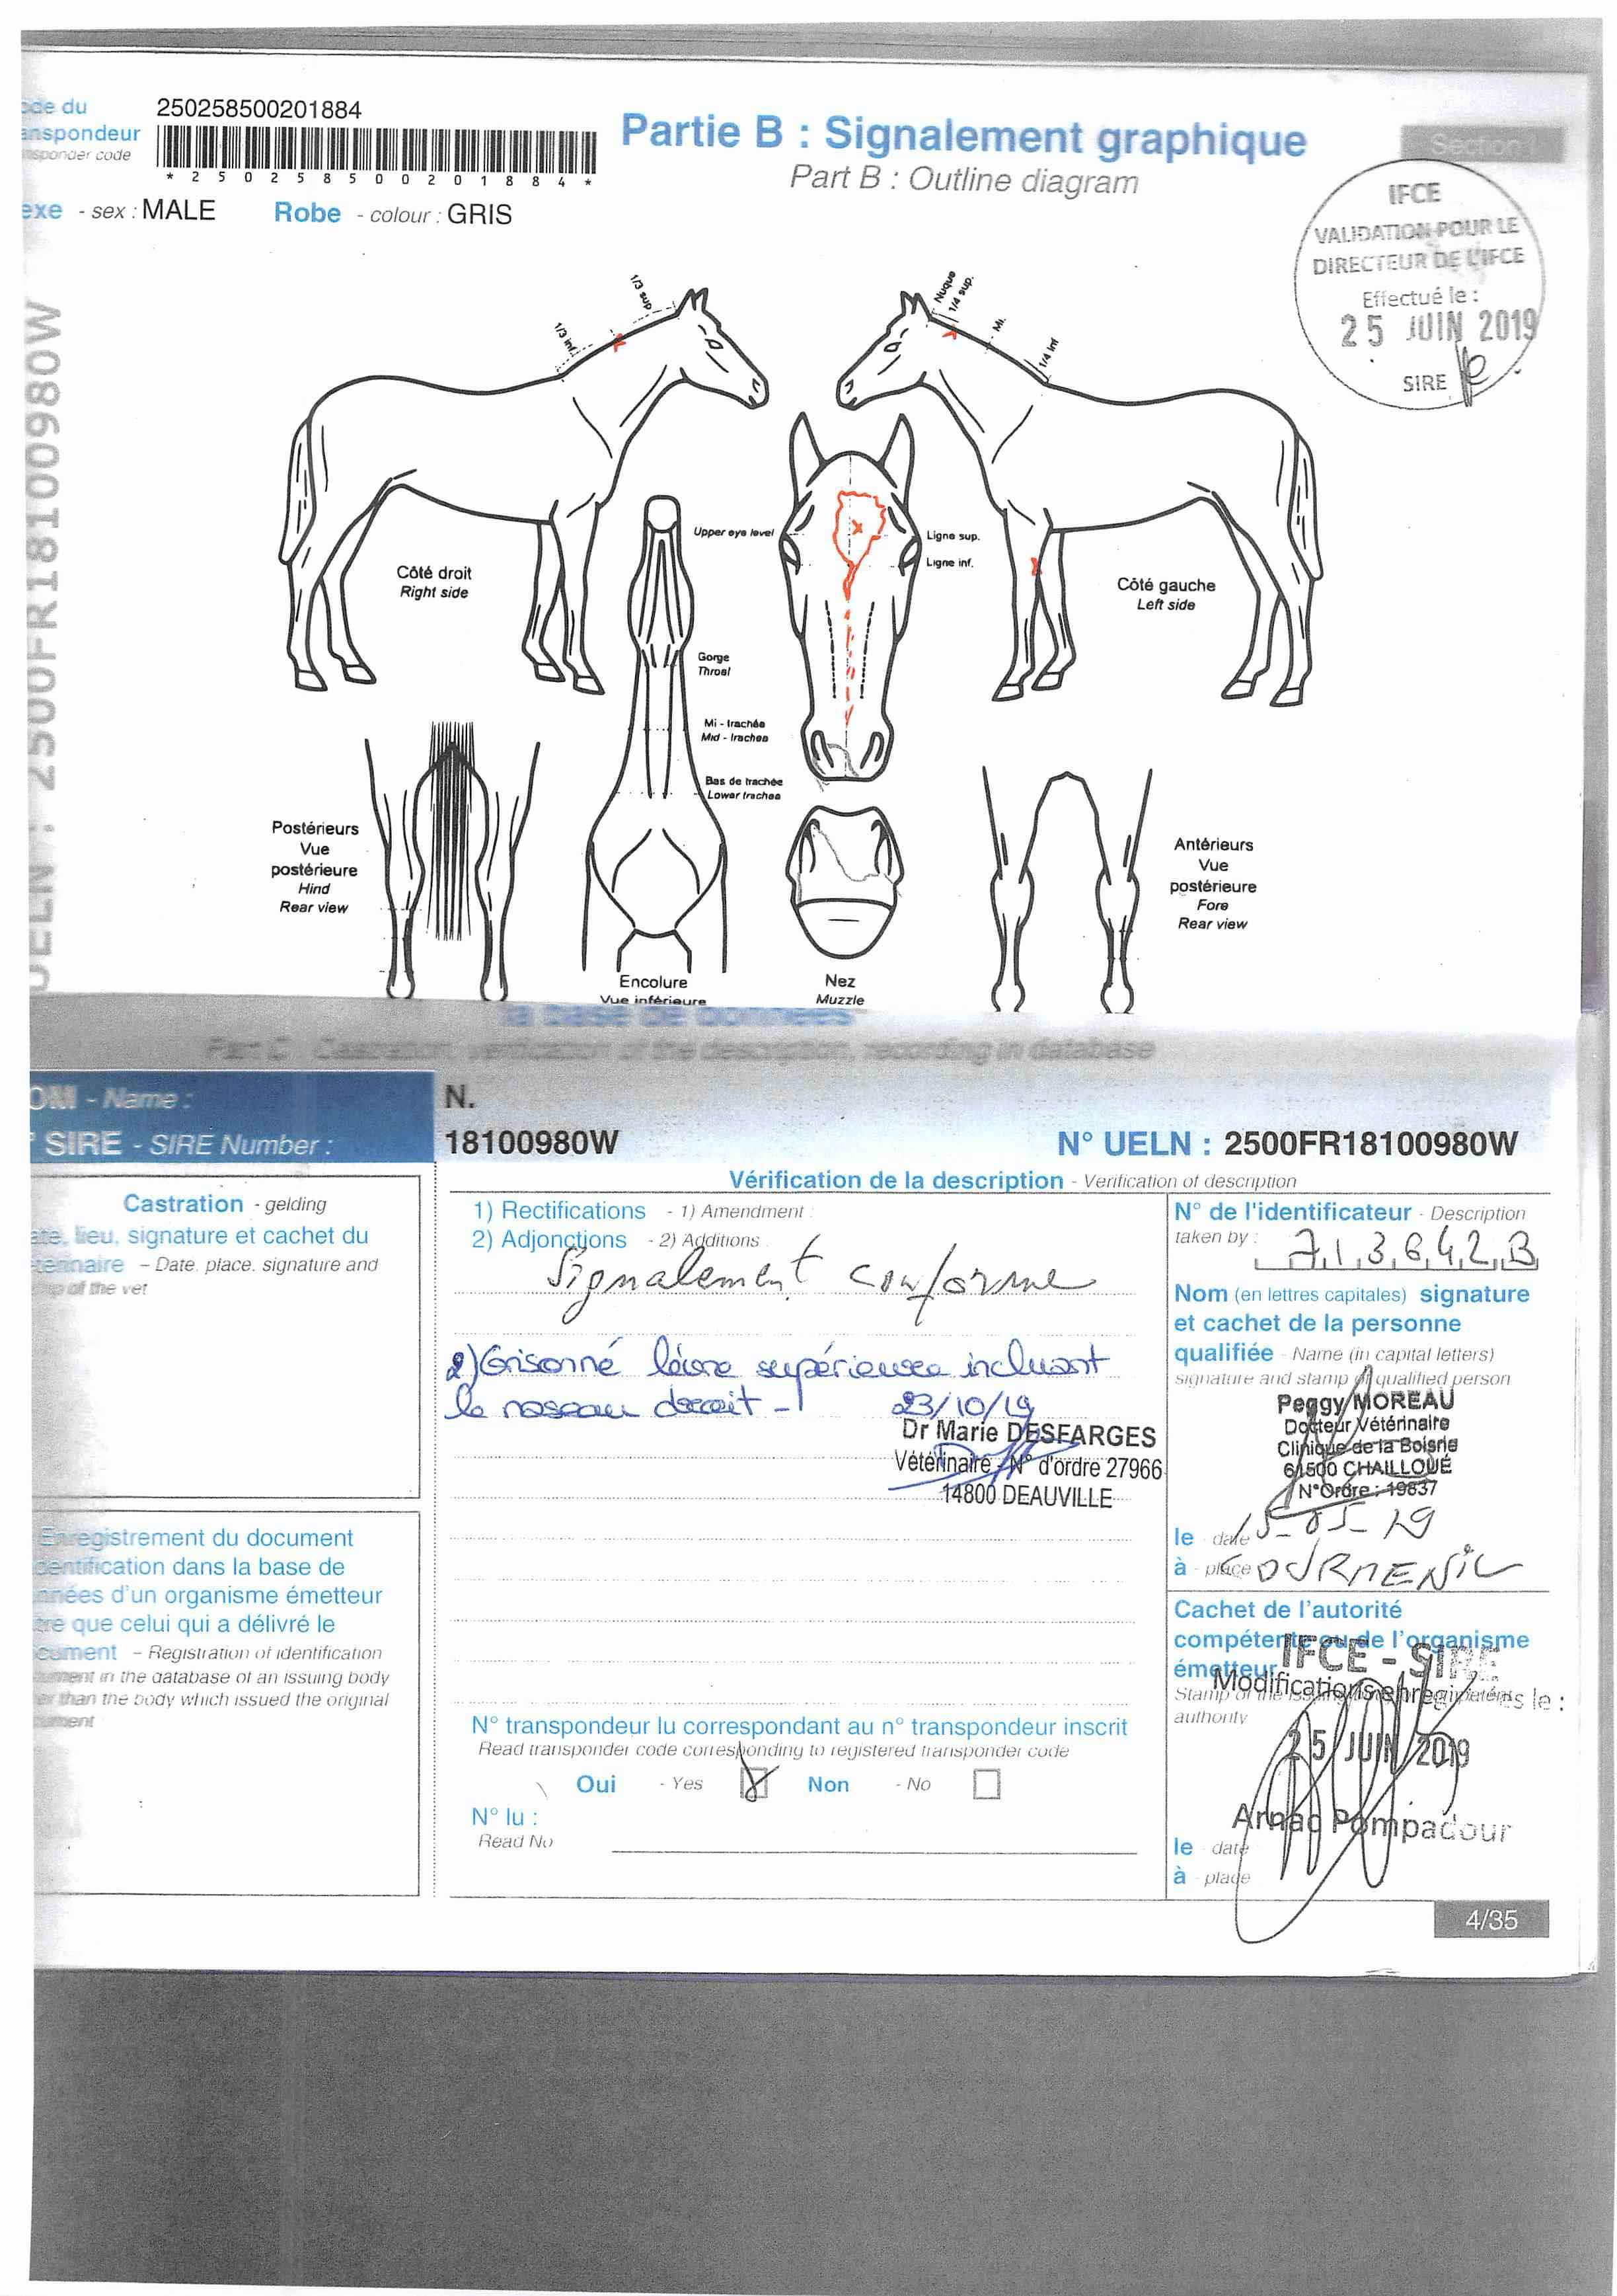 250258500201884
de du
nspondeur
nsponder code
*250258500201884*
exe - sex : MALE Robe - colour : GRIS
Partie B : Signalement graphique
Part B : Outline diagram
Section I
IFCE
VALIDATION POUR LE
DIRECTEUR DE L'IFCE
Effectué le :
25 JUIN 2019
SIRE
UELN : 2500FR18100980W
1/3 sup
1/3 inf.
Nuque
1/4 sup.
Mi.
1/4 inf
Upper eye level
Ligne sup.
Ligne inf.
Côté droit
Right side
Côté gauche
Left side
Gorge
Throat
Mi - trachée
Mid - trachea
Bas de trachée
Lower trachea
Postérieurs
Vue
postérieure
Hind
Rear view
Antérieurs
Vue
postérieure
Fore
Rear view
Encolure
Vue inférieure
Nez
Muzzle
la base de données
Part C Castration, verification of the description, recording in database
OM - Name : N.
° SIRE - SIRE Number : 18100980W N° UELN : 2500FR18100980W
Vérification de la description - Verification of description
Castration - gelding
ate, lieu, signature et cachet du
térinaire - Date, place, signature and
of the vet
1) Rectifications - 1) Amendment :
2) Adjonctions - 2) Additions
Signalement conforme
2) Grisonné lèvre supérieure incluant
le naseau droit - 23/10/19
Dr Marie DESFARGES
Vétérinaire - N° d'ordre 27966
14800 DEAUVILLE
N° de l'identificateur - Description
taken by : 713642B
Nom (en lettres capitales) signature
et cachet de la personne
qualifiée - Name (in capital letters)
signature and stamp of qualified person
Peggy MOREAU
Docteur Vétérinaire
Clinique de la Boisrie
61500 CHAILLOUÉ
N°Ordre : 19837
le - date 15-05-19
à - place
Enregistrement du document
entification dans la base de
nnées d'un organisme émetteur
tre que celui qui a délivré le
cument - Registration of identification
ument in the database of an issuing body
er than the body which issued the original
ument
Cachet de l'autorité
compétente ou de l'organisme
émetteur
Stamp of the issuing
authority
IFCE - SIRE
Modifications enregistrées le :
25 JUIN 2019
Arnac Pompadour
le - date
à - place
N° transpondeur lu correspondant au n° transpondeur inscrit
Read transponder code corresponding to registered transponder code
Oui - Yes Non - No
N° lu :
Read No
4/35